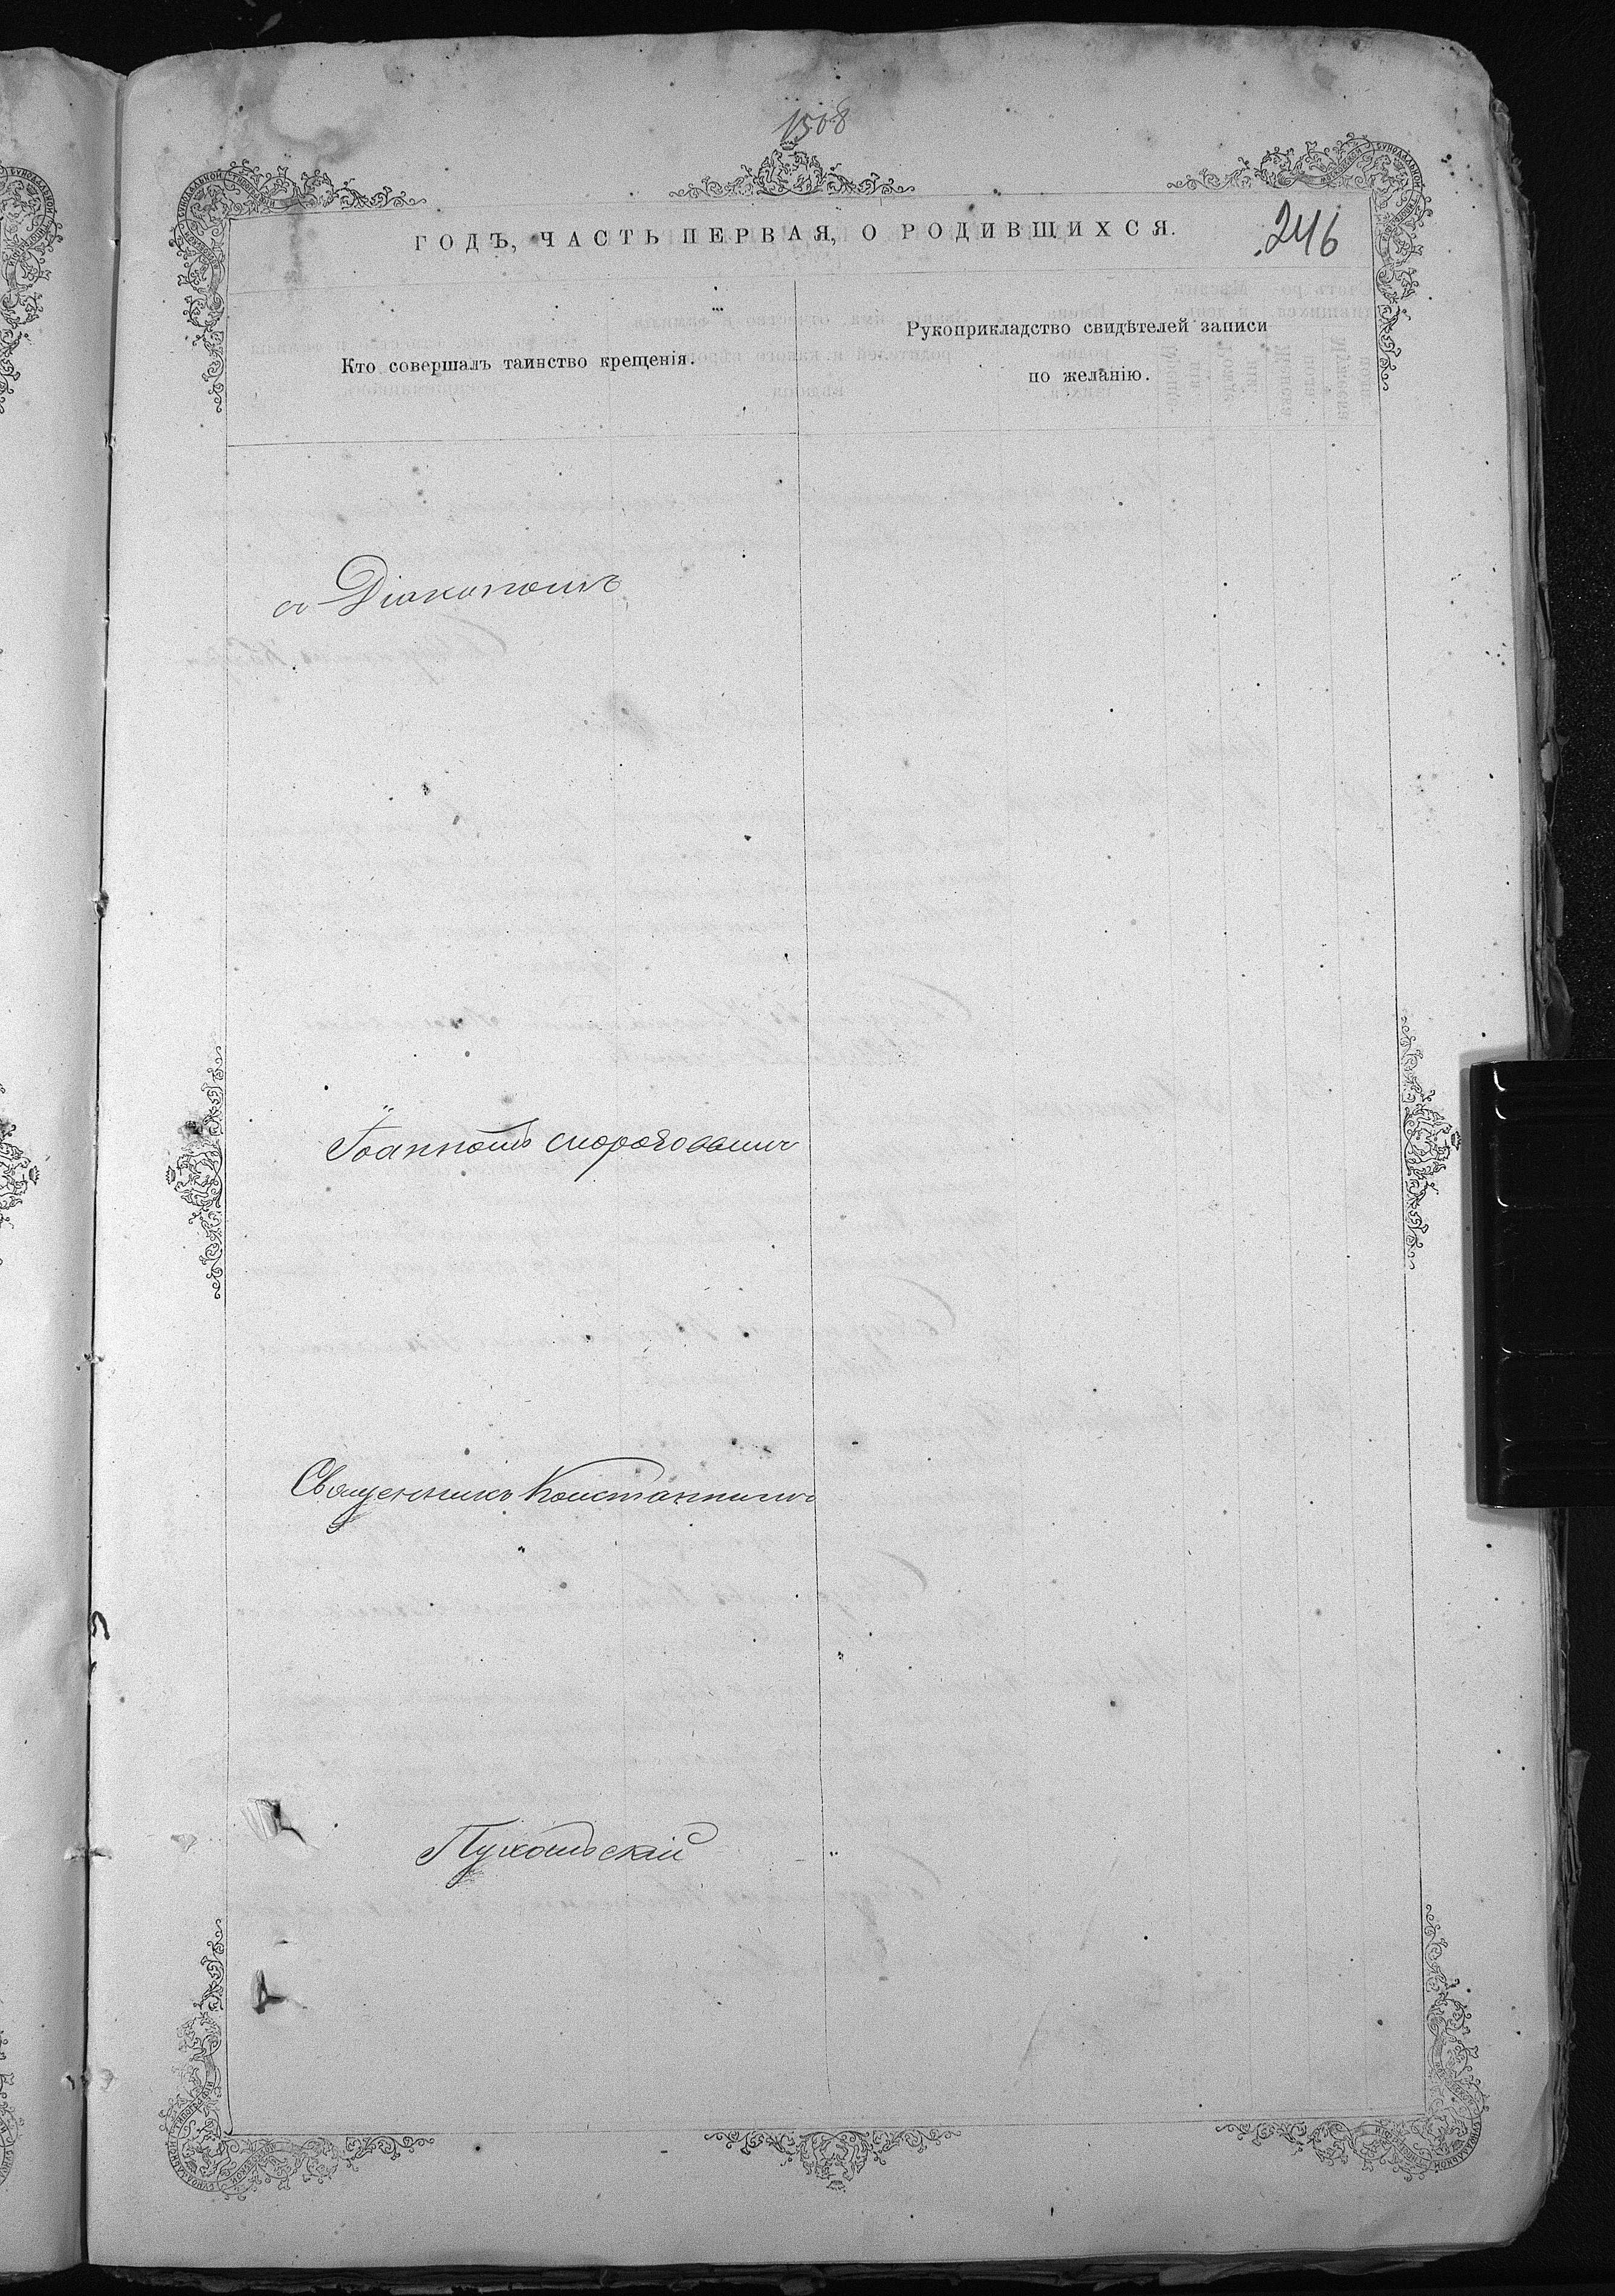 1508
ГОДЪ, ЧАСТЬ ПЕРВАЯ, О РОДИВШИХСЯ.
246
Кто совершалъ таинство крещенія.
Рукоприкладство свидѣтелей записи
по желанію.
съ Діакономъ
Іоанномъ
Священникъ Константинъ